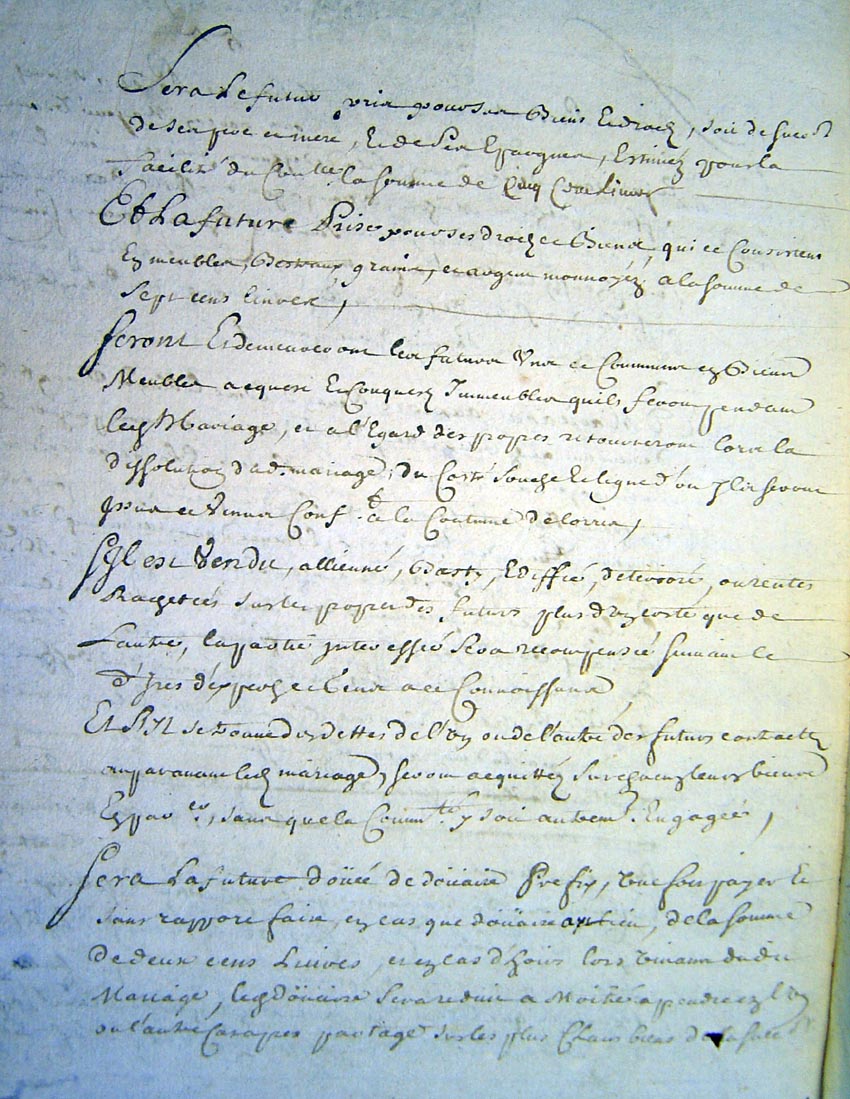 Sera Le futur pris pour ses Biens Et droits, soit de succ.on
de ses pere et mere, Et de Ses Epargnes, Estimez pour la
facilité du Con.lle la somme de Cinq Cens Livres
Et La future Prise pour ses droits et Biens, qui se Consistent
En meubles, Bestiaux grains, et argent monnoyéz a la Somme de
Sept cens Livres,
Seront Et demeureront les futurs Uns et Communs en Biens
Meubles acquest Et Conquest Immeubles quils feront pendant
led. Mariage, et a l'Egard des propres retourneront lors la
dissolution dud. mariage, du Costé Souche Et ligne d'ou Ils seront
Issus et Venus Conf. à la Coutume de Lorris,
S'Il est Vendu, allienné, Basty, Ediffié, deterioré, ou rentes
Rachetées sur les propres des futurs plus d'un costé que de
L'autre, la partie interessée Sera recompensée suivant le
d'Ires d'expers et Gens a ce Connoissans,
Et S'Il se trouve des dettes de l'Un ou de l'autre des futurs contractez
auparavant led. mariage, seront acquittéz sur chacun leurs biens
En par.er, sans que la Comm.té y soit autrem.t Engagée,
Sera La future doüée de doüaire Prefix, Une fois payer Et
sans rapport faire, en cas que doüaire ayt lieu, de la somme
de deux cens Livres, et en cas d'hoirs lors vivant dud.
Mariage, led. Doüaire Sera reduit a Moitié a prendre en l'un
ou l'autre Cas apres partage sur les plus Clairs biens de la succ.on